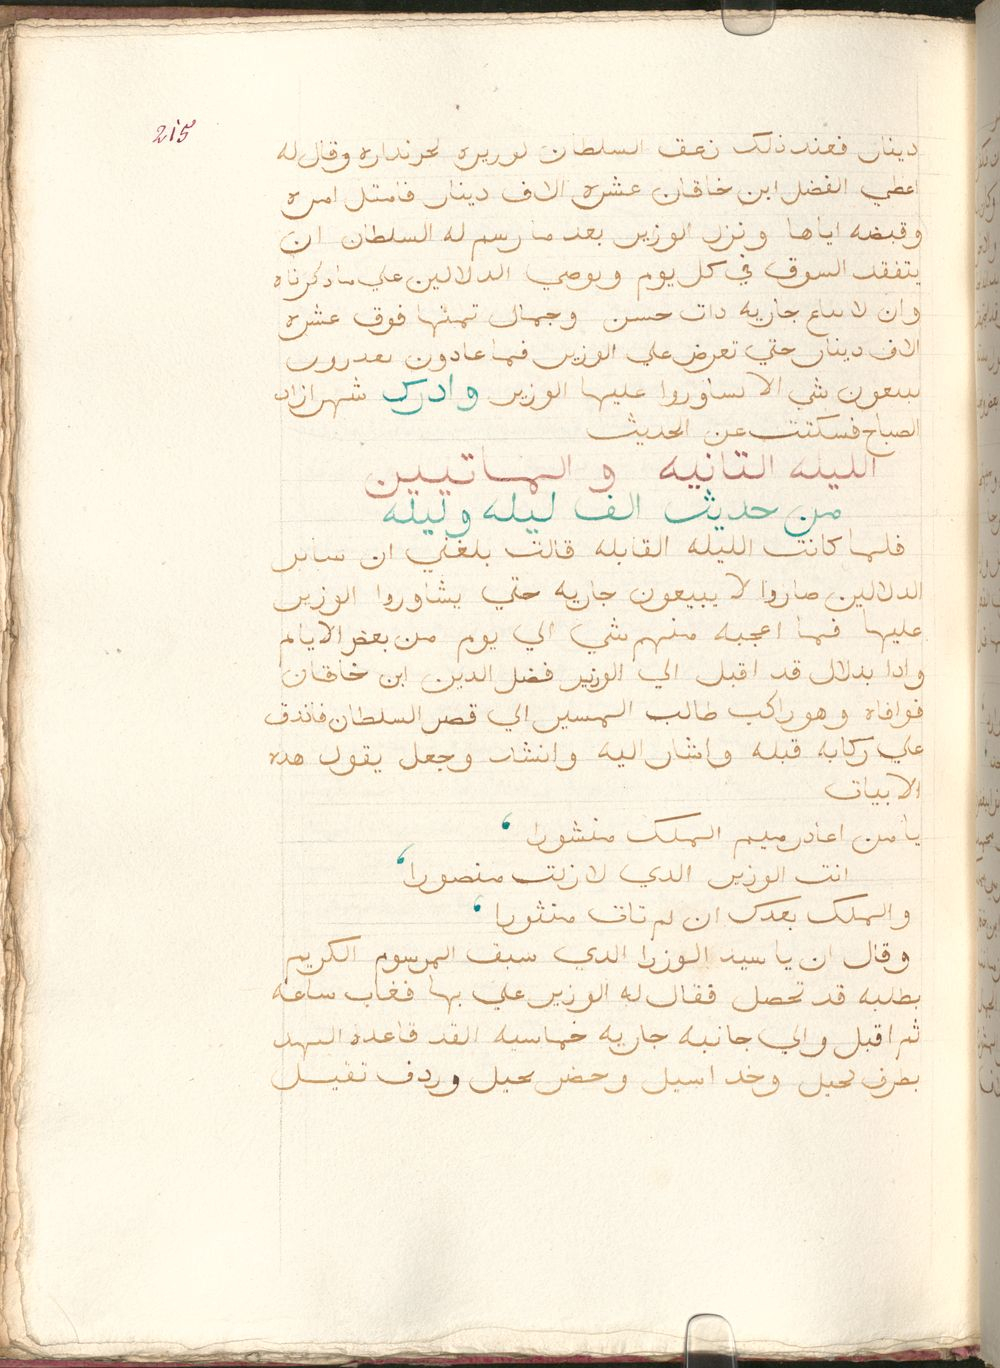 215
دينار فعند ذلك زعق السلطان لوزيره لخزنداره وقال له
اعطي الفضل ابن خاقان عشره الاف دينار فامتثل امره
وقبضه اياها ونزل الوزير بعد ما رسم له السلطان ان
يتفقد السوق في كل يوم ويوصي الدلالين علي ما ذكرناه
وان لا يباع جاريه دات حسن وجمال تمنها فوق عشره
الاف دينار حتي تعرض علي الوزير فما عادون يقدرون
يبيعون شي الا يشاوروا عليها الوزير وادرك شهرازاد
الصباح فسكتت عن الحديث
الليله التانيه والماتيين
من حديث الف ليله وليله
فلما كانت الليله القابله قالت بلغني ان ساير
الدلالين صاروا لا يبيعون جاريه حتي يشاوروا الوزير
عليها فما اعجبه منهم شي الي يوم من بعض الايام
وادا بدلال قد اقبل الي الوزير فضل الدين ابن خاقان
فوافاه وهو راكب طالب المسير الي قصر السلطان فاندق
علي ركابه قبله واشار اليه وانشار وجعل يقول هده
الابيات
يا من اعاد رميم الملك منشورا ،
انت الوزير الدي لا زلت منصورا ،
والملك بعدك ان لم تات منثورا ،
وقال ان يا سيد الوزرا الدي سبق المرسوم الكريم
بطلبه قد تحصل فقال له الوزير علي بها فغاب ساعه
ثم اقبل والي جانبه جاريه خماسيه القد قاعده النهد
بطرف كحيل وخد اسيل وخصر نحيل وردف تقيل